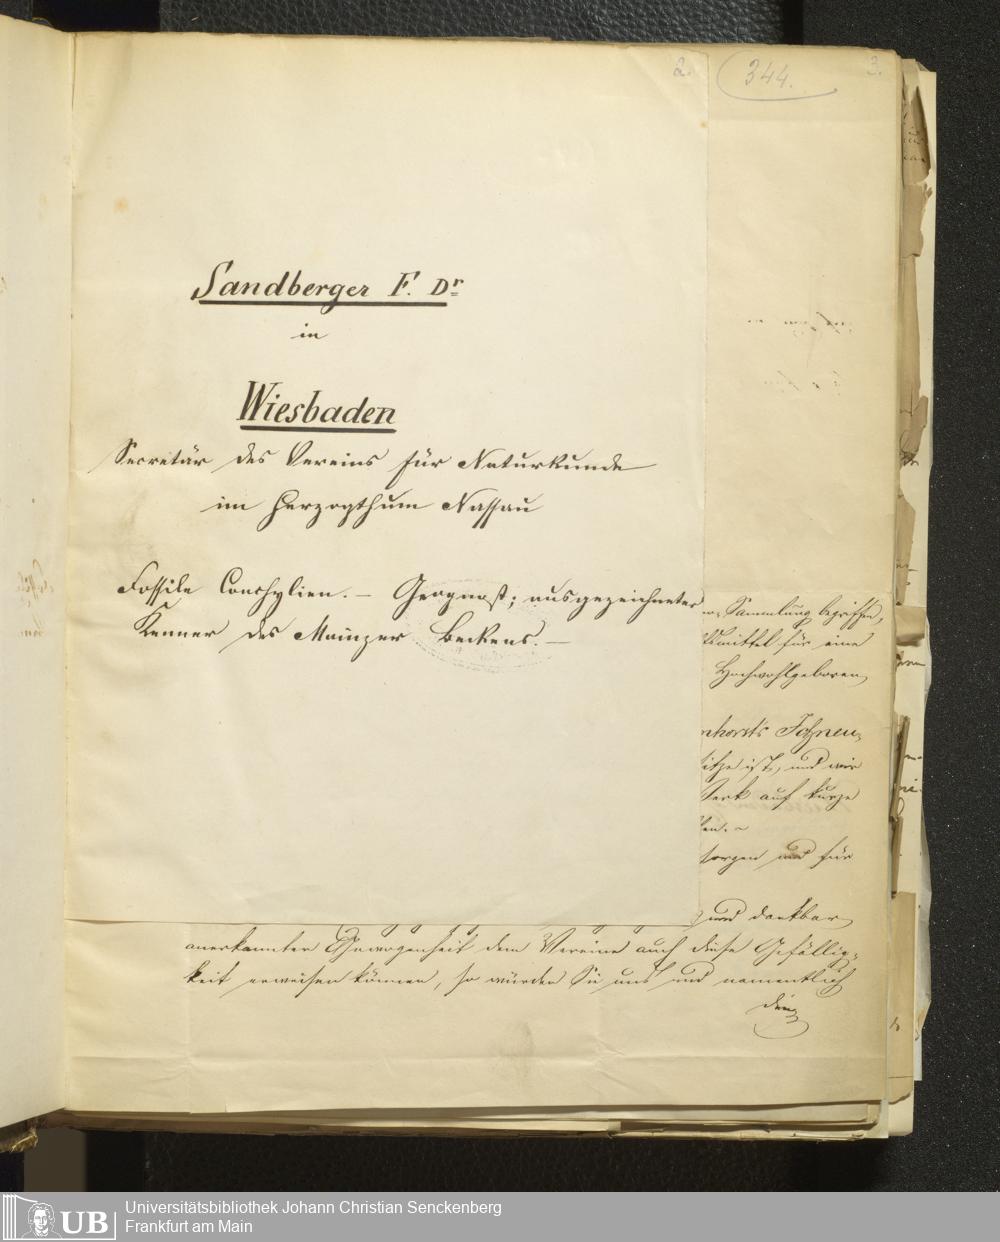 2.
344.
3.
Sandberger F. Dr
in
Wiesbaden
Secretär des Vereins für Naturkunde
im Herzogthum Nassau
Fossile Conchylien. – Geognost; ausgezeichneter
Kenner des Mainzer Beckens. –
Sammlung begriffen,
für eine
Hochwohlgeboren
ist, und wir
auf kurze
sorgen und für
und dankbar
anerkannter Gewogenheit dem Vereine auch diese Gefällig-
keit erweisen können, so würden Sie uns und namentlich
Universitätsbibliothek Johann Christian Senckenberg
Frankfurt am Main
UB